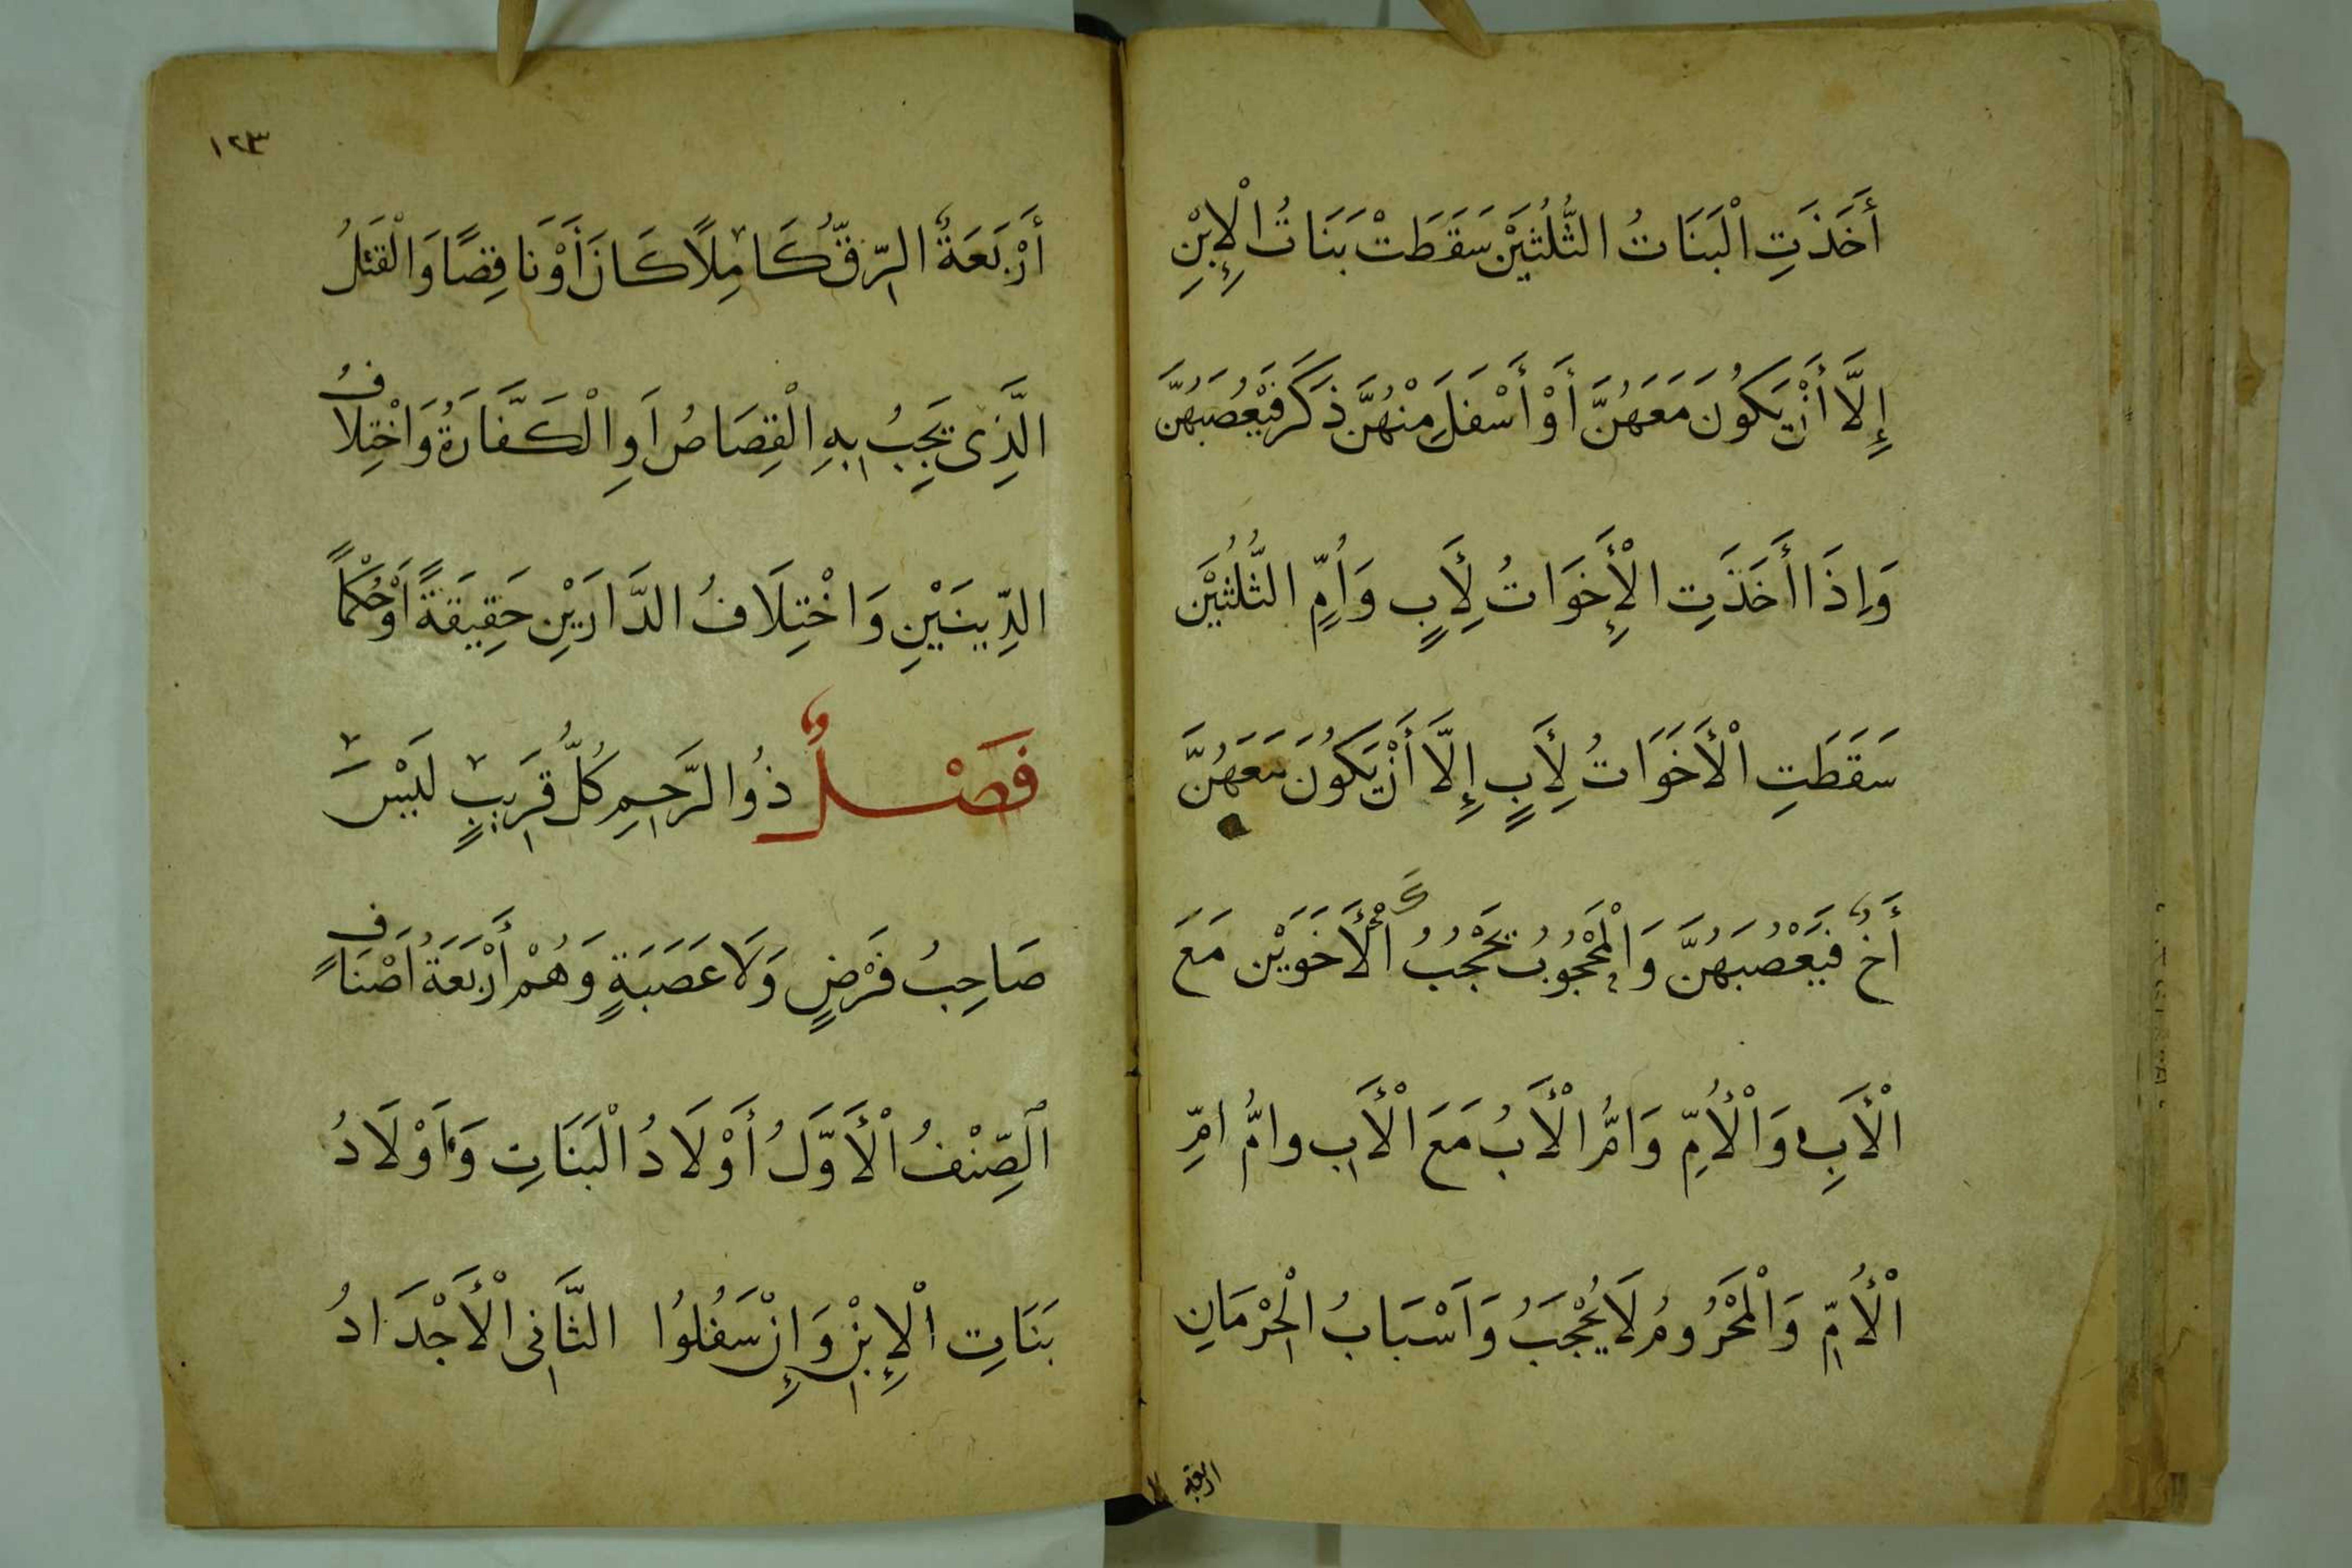 أَخَذَتِ الْبَنَاتُ الثُّلُثَيْنِ سَقَطَتْ بَنَاتُ الْإِبْنِ
إِلَّا أَنْ يَكُونَ مَعَهُنَّ أَوْ أَسْفَلَ مِنْهُنَّ ذَكَرٌ فَيَعْصُبَهُنَّ
وَإِذَا أَخَذَتِ الْأَخَوَاتُ لِأَبٍ وَاُمٍّ الثُّلُثَيْنِ
سَقَطَتِ الْأَخَوَاتُ لِأَبٍ إِلَّا أَنْ يَكُونَ مَعَهُنَّ
أَخٌ فَيَعْصُبَهُنَّ وَالْمَحْجُوبُ يَحْجُبُ كَالْأَخَوَيْنِ مَعَ
الْأَبِ وَالْأُمِّ وَاُمُّ الْأَبُ مَعَ الْأَبِ وامُّ امِّ
الْأُمِّ وَالْمَحْرُومُ لَا يُحْجَبُ وَاَسْبَابُ الْحِرْمَانِ
اربعة
١٢٣
أَرْبَعَةٌ الرِّقُّ كَامِلًا كَانَ أَوْ نَاقِصًا وَالْقَتْلُ
الَّذِى يَجِبُ بِهِ الْقِصَاصُ اَوِ الْكَفَّارَةُ وَاخْتِلَافُ
الدِّينَيْنِ وَاخْتِلَافُ الدَّارَيْنِ حَقِيقَةً اَوْ حُكْمًا
فَصْلٌ ذُو الرَّحِمِ كُلُّ قَرِيبٍ لَيْسَ
صَاحِبُ فَرْضٍ وَلَا عَصَبَةٍ وَهُمْ أَرْبَعَةُ اَصْنَافٍ
اَلصِّنْفُ الْأَوَّلُ أَوْلَادُ الْبَنَاتِ وَاَوْلَادُ
بَنَاتِ الْإِبْنِ وَإِنْ سَفُلُوا الثَّانِى الْأَجْدَادُ